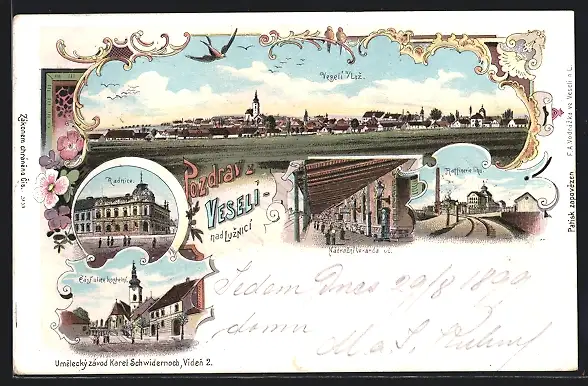 Veselí n/Luž.
Zákonem chráněno Čís.
F. A. Vodrážka ve Veselí n L.
Patisk zapovězen
Pozdrav z
Veselí-
nad Lužnicí
Radnice.
Rafinerie lihu
Nádražní Veranda
Část ulice kostelní
Jedem Dnes 29/8 1899
domu
M. a. S.
Umělecký závod Karel Schwidernoch, Vídeň 2.